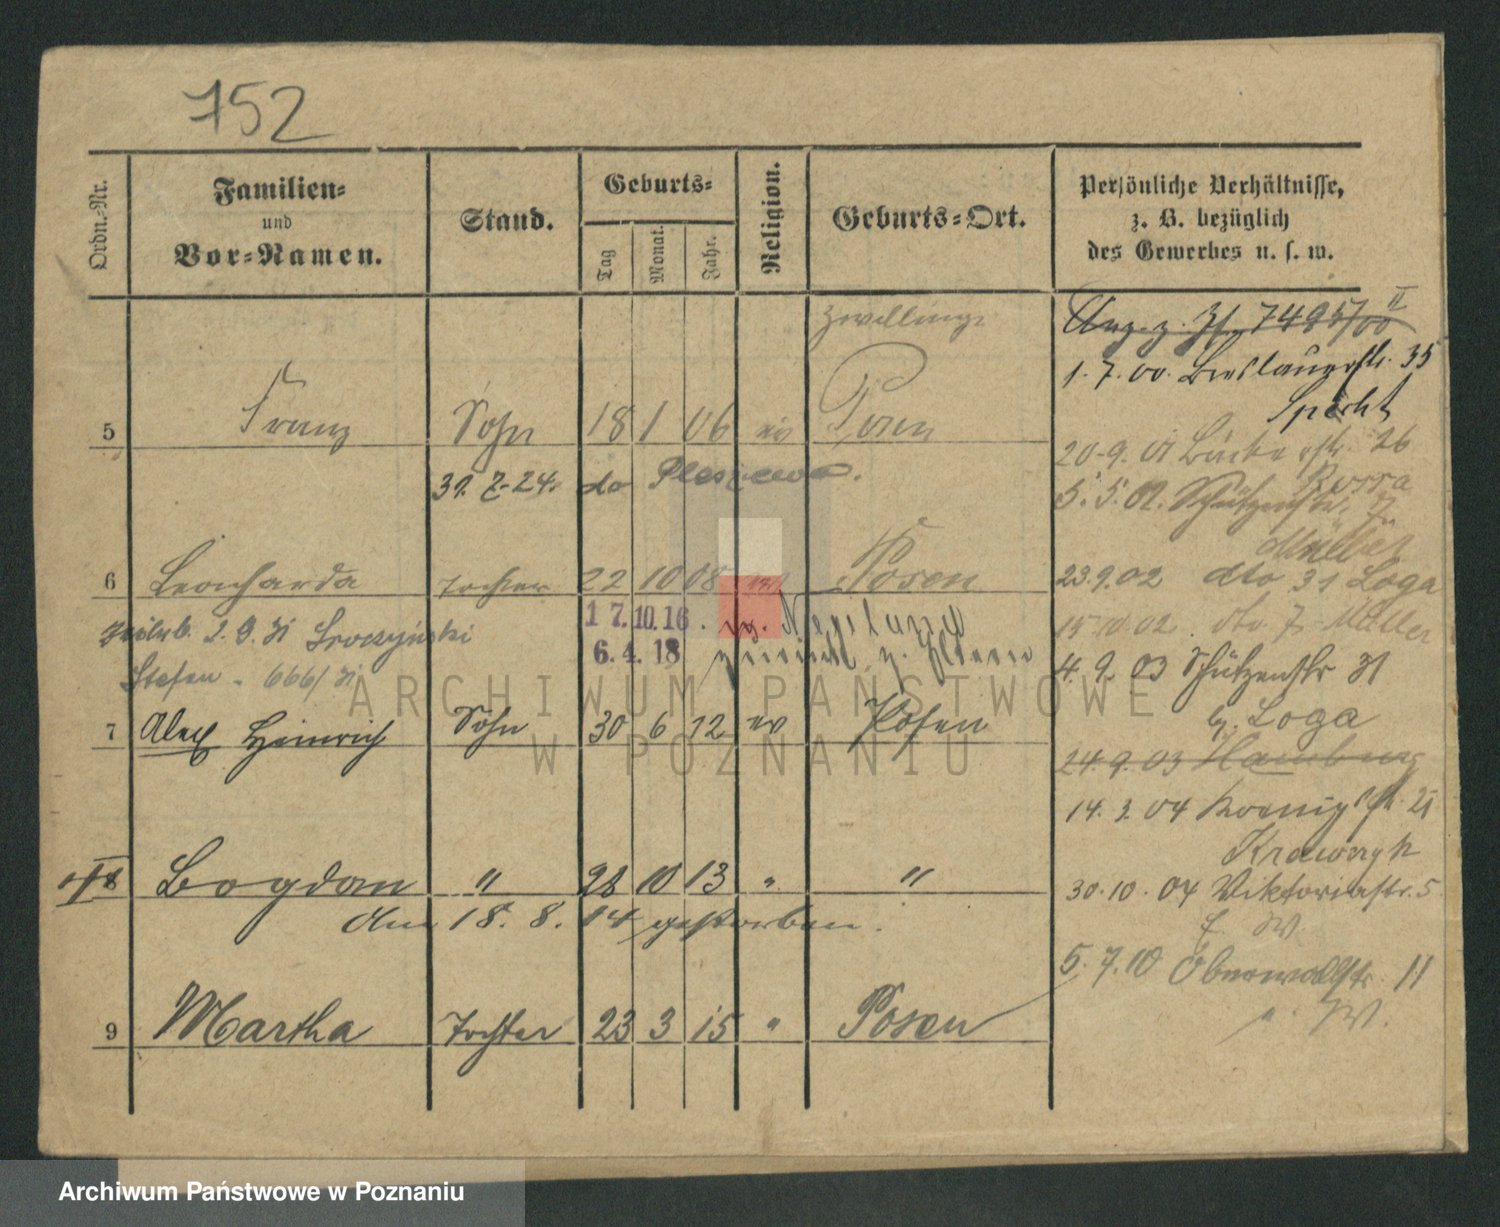 752
Ordn.-Nr.
Familien-
und
Vor-Namen.
Stand.
Geburts-
Tag
Monat.
Jahr.
Religion.
Geburts-Ort.
Persönliche Verhältnisse,
z. B. bezüglich
des Gewerbes u. s. w.
Zwillinge
5 Franz Sohn 18 1 06 ev Posen
31. 7. 24. do Pleszewa.
6 Leonharda Tochter 22 10 08 Posen
17. 10. 16.
6. 4. 18
Stefan - 666/31
7 Alex Heinrich Sohn 30 6 12 ev Posen
8 Bogdan " 28 10 13 " "
Am 18. 8. 14 gestorben.
9 Martha Tochter 23 3 15 " Posen
Ang. z. 7495/00 II
1. 7. 00. Breslauerstr. 35
Specht
20. 9. 01 26
5. 5. 02. Schützenstr. 7
Müller
23. 9. 02 dto 31 Loga
15. 10. 02. dto 7 Müller
4. 9. 03 Schützenstr 31
b. Loga
24. 9. 03 Hamburg
14. 3. 04 Koenigstr. 21
30. 10. 04 Viktoriastr. 5
E. W.
5. 7. 10 Oberwallstr. 11
" W.
ARCHIWUM PAŃSTWOWE
W POZNANIU
Archiwum Państwowe w Poznaniu